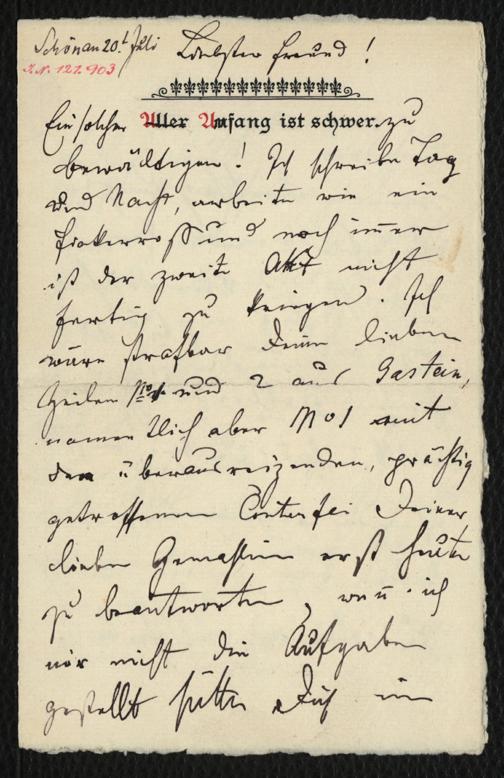 Schönau 20t Juli
I.N. 121.903
Liebster Freund!
Ein solcher Aller Anfang ist schwer. zu
bewältigen! Ich schreibe Tag
und Nacht, arbeite wie ein
Fiakerross und noch immer
ist der zweite Akt nicht
fertig zu kriegen. Ich
wäre strafbar Deine lieben
Zeilen No 1 und 2 aus Gastein,
namentlich aber No 1 mit
dem überausreizenden, prächtig
getroffenen Conterfei Deiner
lieben Gemahlin erst heute
zu beantworten, wenn ich
mir nicht die Aufgabe
gestellt hätte Dich im